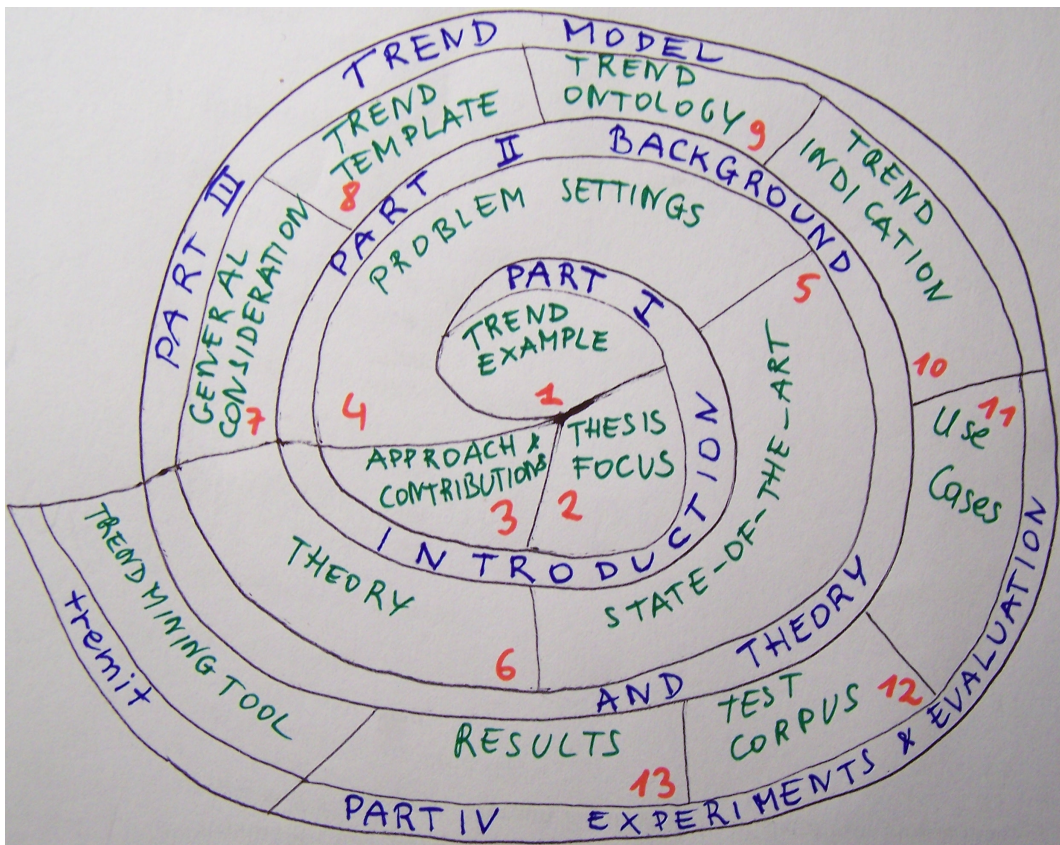 PART I
INTRODUCTION
TREND
EXAMPLE
1
THESIS
FOCUS
2
APPROACH &
CONTRIBUTIONS
3
PART II
BACKGROUND
AND
THEORY
PROBLEM SETTINGS
4
STATE-OF-THE-ART
5
THEORY
6
PART III
TREND MODEL
GENERAL
CONSIDERATION
7
TREND
TEMPLATE
8
TREND
ONTOLOGY
9
TREND
INDICATION
10
PART IV
EXPERIMENTS & EVALUATION
Use
Cases
11
TEST
CORPUS
12
RESULTS
13
TREND MINING TOOL
tremit